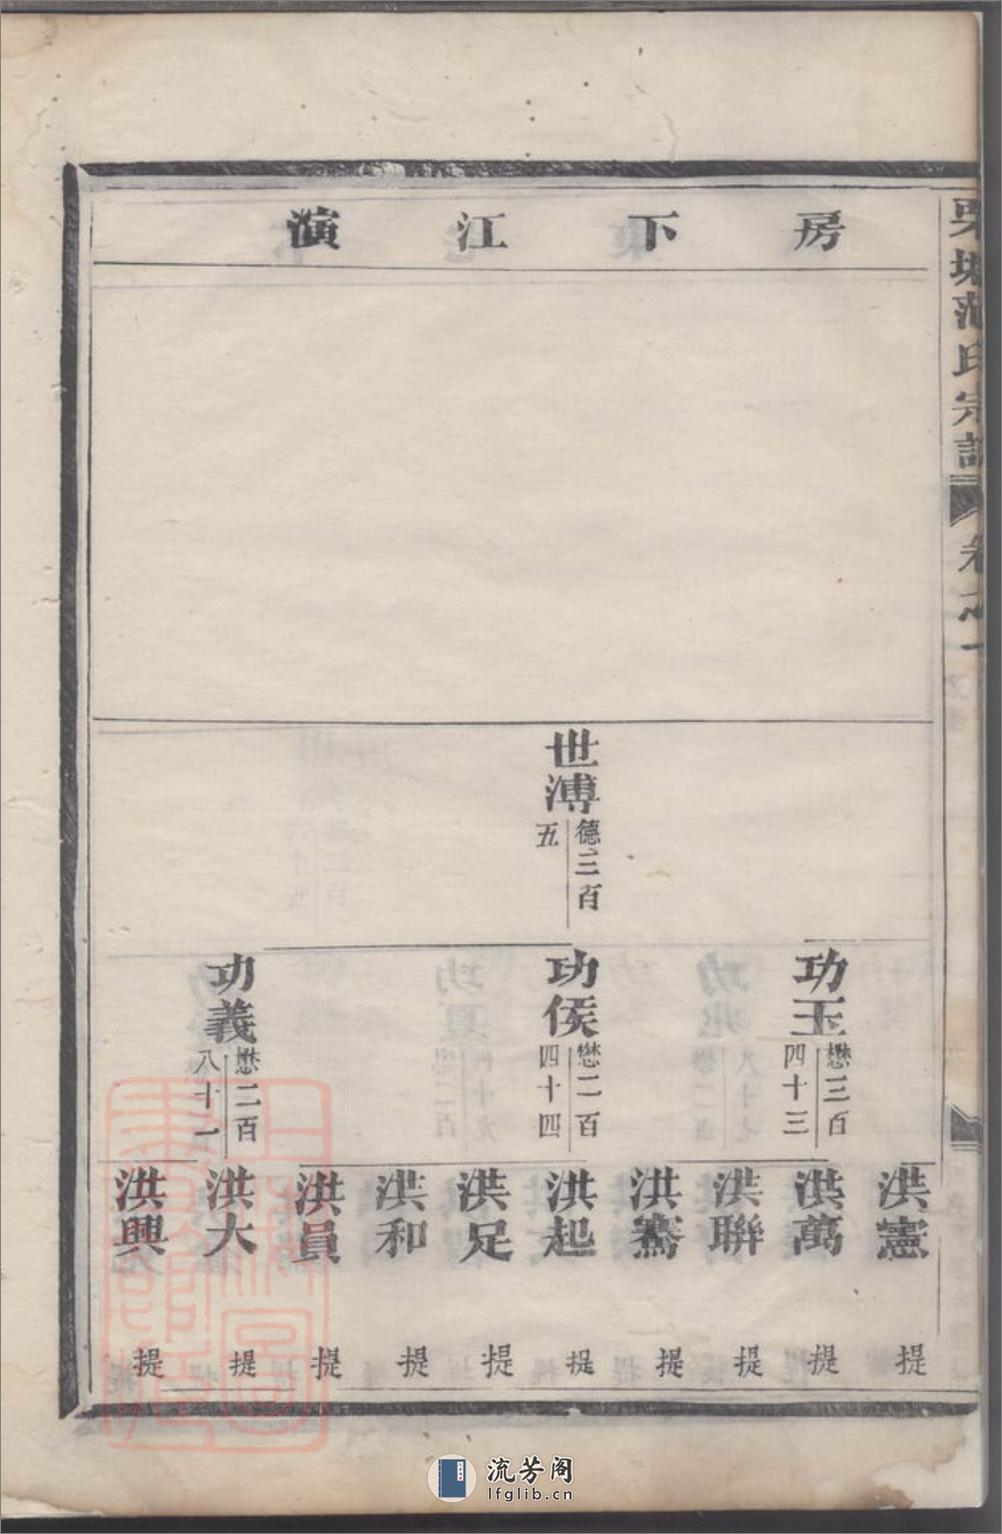 房下江演
栗塘范氏宗譜
卷之一
世溥
德三百
五
功玉
懋三百
四十三
功侯
懋二百
四十四
功義
懋二百
八十一
洪憲 提
洪萬 提
洪聯 提
洪騫 提
洪起 提
洪足 提
洪和 提
洪員 提
洪大 提
洪興 提
流芳阁
lfglib.cn